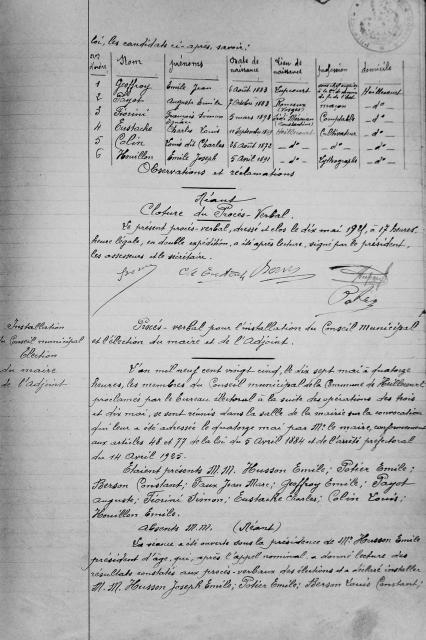 loi, les candidats ci-après, savoir:
Nos d'ordre Nom prénoms Date de naissance Lieu de naissance profession domicile
1 Geoffroy Emile Jean 6 Août 1883
2 Payot Auguste Emile 7 Octobre 1883 maçon -do-
3 Fiorini François Simon 5 mars 1898 Comptable -do-
4 Eustache Charles Louis 11 Septembre Cultivateur -do-
5 Colin Louis dit Charles 26 Août 1872 -do- -do- -do-
6 Houillon Emile Joseph 5 Avril 1891 -do- Lythographe -do-
Observations et réclamations
Néant
Cloture du Procès-Verbal.
Le présent procès-verbal, dressé et clos le dix mai à 17 heures
heure légale, en double expédition, a été après lecture, signé par le président,
les assesseurs et le sécrétaire.
Installation
du Conseil municipal
Election
du maire
de l'Adjoint
Procès-verbal pour l'installation du Conseil municipal
et l'élection du maire et de l'Adjoint.
L'an mil neuf cent vingt cinq, le dix sept mai à quatorze
heures, les membres du Conseil municipal de la Commune de
proclamés par le bureau électoral à la suite des opérations des trois
et dix mai, se sont réunis dans la salle de la mairie sur la convocation
qui leur a été adressée le quatorze mai par Mr le maire, conformément
aux articles 48 et 77 de la loi du 5 Avril 1884 et de l'arrêté préfectoral
du 14 Avril 1925.
Etaient présents M.M. Husson Emile; Potier Emile;
Berson Constant; Jean Marc; Geoffroy Emile; Payot
Auguste; Fiorini Simon; Eustache Charles; Colin Louis;
Houillon Emile.
Absents M.M. (Néant)
La séance a été ouverte sous la présidence de Mr Husson Emile
président d'âge, qui, après l'appel nominal, a donné lecture des
résultats constatés aux procès-verbaux des élections et a déclaré installer
M.M. Husson Joseph Emile; Potier Emile; Berson Louis Constant;